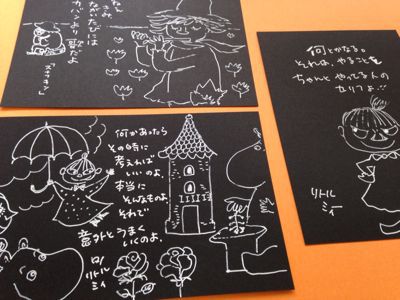 ねえ きみ、
ながいたびには
カバンより 歌だよ
スナフキン
何とかなる。
それは、やることを
ちゃんとやってる人の
セリフよ!!
リトル
ミィ
何かあったら
その時に
考えれば
いいのよ。
本当に
そんなものよ
それで
意外とうまく
いくのよ。
by
リトル
ミィ